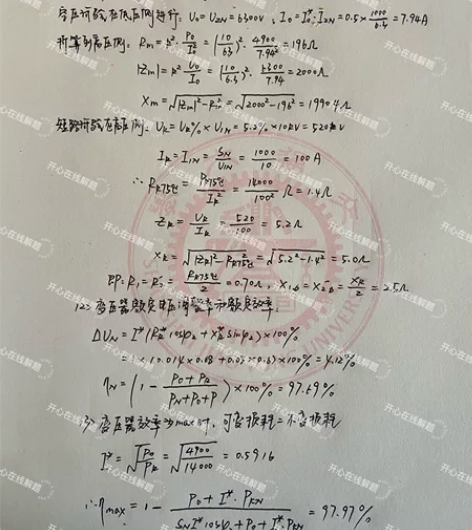 空压试验在低压侧进行. U₀ = U₂N = 6300V, I₀ = I₀*·I₂N = 0.5 × 1000/6.3 = 7.94A
折算到高压侧: Rm = k²·P₀/I₀² = (10/6.3)²·4900/7.94² = 196Ω
|Zm| = k² U₀/I₀ = (10/6.3)²·6300/7.94 = 2000Ω
Xm = √|Zm|²-Rm² = √2000²-196² = 1990.4Ω
短路试验在高压侧. Uk = Uk% × U₁N = 5.2% × 10kV = 520 V
Ik = I₁N = SN/U₁N = 1000/10 = 100A
∴ Rk75℃ = Pk75℃/Ik² = 14000/100² Ω = 1.4Ω
Zk = Uk/Ik = 520/100 = 5.2Ω
Xk = √|Zk|²-Rk75℃² = √5.2²-1.4² = 5.0Ω
即: R₁ = R₂' = Rk75℃/2 = 0.70Ω, X₁σ = X₂σ' = Xk/2 = 2.5Ω
(2) 变压器额定电压调整率和额定效率:
ΔUN = I*(Rk*cosφ₂ + Xk*sinφ₂) × 100%
= 1 × (0.014 × 0.8 + 0.05 × 0.6) × 100% = 4.12%
ηN = (1 - P₀+Pk/PN+P₀+P) × 100% = 97.69%
(3) 变压器效率为max时, 可变损耗 = 不变损耗
I* = √P₀/Pk = √4900/14000 = 0.5916
∴ ηmax = 1 - P₀+I*·PkN/SN I* cosφ₂+P₀+I*·PkN = 97.97%
开心在线解题